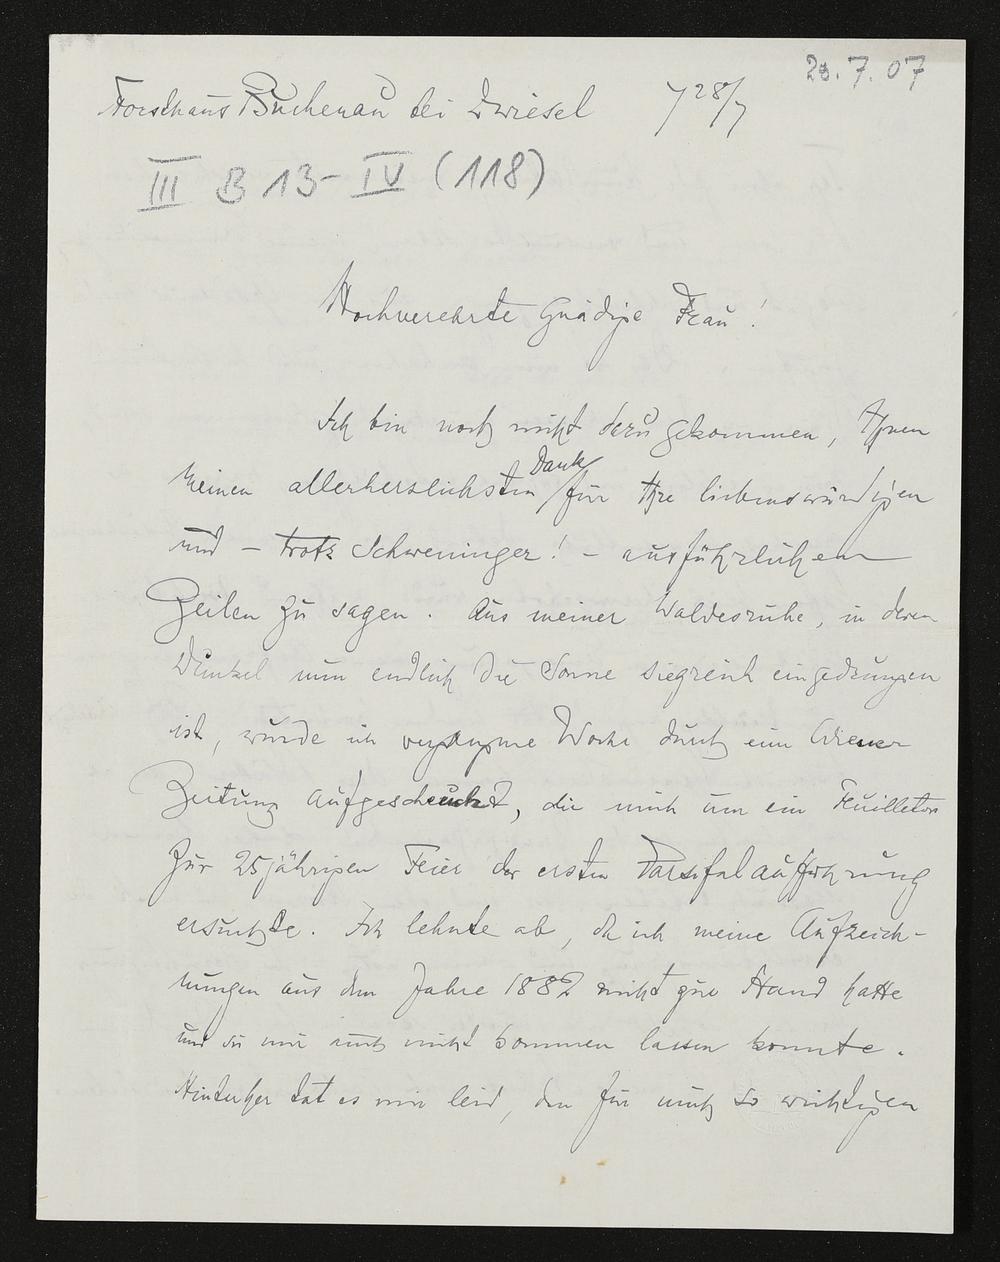 28.7.07
Forsthaus Buchenau bei Zwiesel 28/7
III B 13 - IV (118)
Hochverehrte Gnädige Frau!
Ich bin noch nicht dazu gekommen, Ihnen
meinen allerherzlichsten Dank für Ihre liebenswürdigen
und – trotz Schweninger! – ausführlichen
Zeilen zu sagen. Aus meiner Waldesruhe, in deren
Dunkel nun endlich die Sonne siegreich eingedrungen
ist, wurde ich vergangene Woche durch eine Wiener
Zeitung aufgeschreckt, die mich um ein Feuilleton
zur 25jährigen Feier der ersten Parsifalaufführung
ersuchte. Ich lehnte ab, da ich meine Aufzeich-
nungen aus dem Jahre 1882 nicht zur Hand hatte
und sie mir auch nicht kommen lassen konnte.
Hinterher tat es mir leid, den für mich so wichtigen